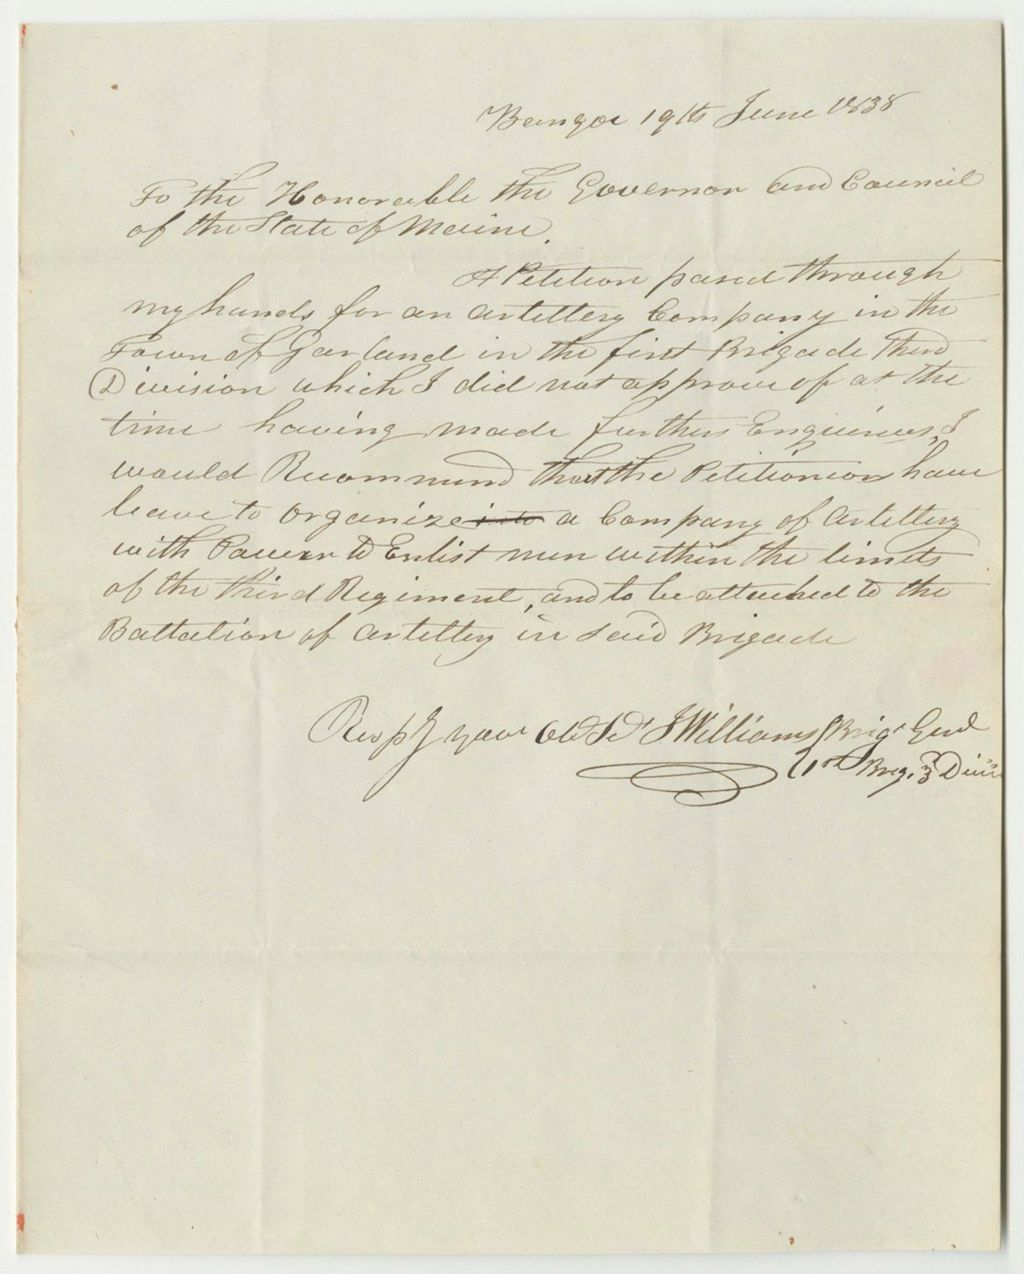 Bangor 19th June 1838
To the Honorable the Governor and Council
of the State of Maine.
A Petition passed through
my hands for an artillery Company in the
Town of Garland in the first Brigade Third
Division which I did not approve of at the
time having made further Enquiries, I
would Recommend that the Petitioners have
leave to organize into a Company of Artillery
with Power to Enlist men within the limits
of the third Regiment, and to be attached to the
Battalion of Artillery in said Brigade
Respy your Obt St J Williams Brigr Genl
1st Brig. 3d Divis